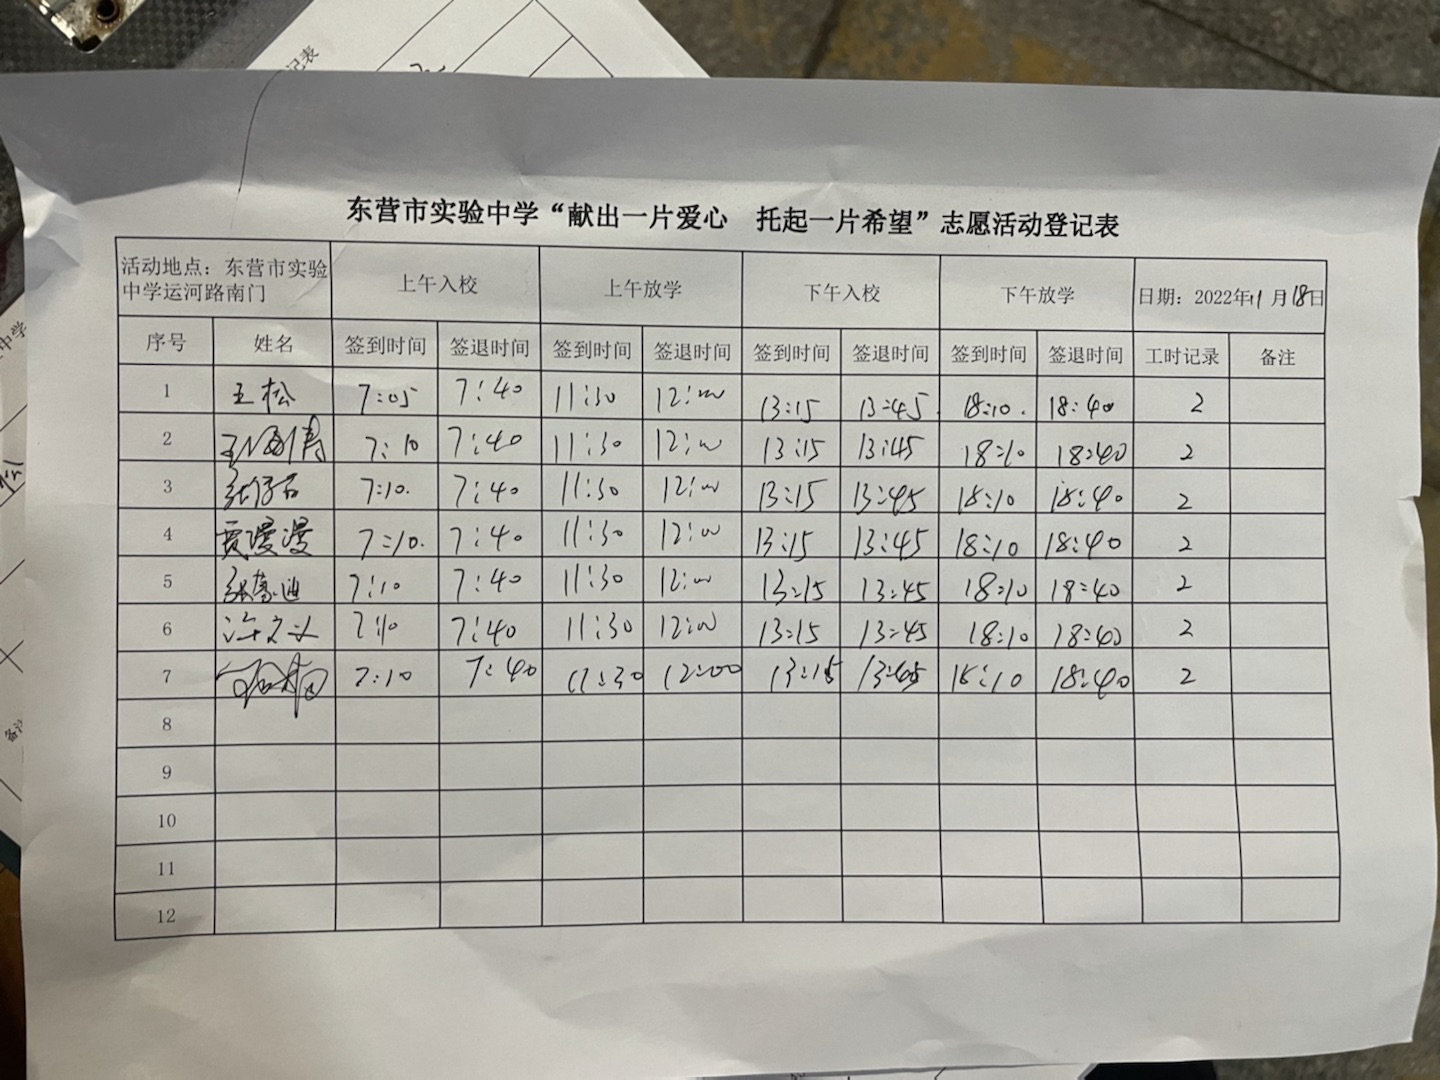 记表
东营市实验中学“献出一片爱心 托起一片希望”志愿活动登记表
活动地点：东营市实验中学运河路南门 上午入校 上午放学 下午入校 下午放学 日期：2022年11月18日
序号 姓名 签到时间 签退时间 签到时间 签退时间 签到时间 签退时间 签到时间 签退时间 工时记录 备注
1 王松 7:05 7:40 11:30 12:00 13:15 13:45 18:10 18:40 2
2 7:10 7:40 11:30 12:00 13:15 13:45 18:10 18:40 2
3 7:10 7:40 11:30 12:00 13:15 13:45 18:10 18:40 2
4 贾漫漫 7:10 7:40 11:30 12:00 13:15 13:45 18:10 18:40 2
5 7:10 7:40 11:30 12:00 13:15 13:45 18:10 18:40 2
6 7:10 7:40 11:30 12:00 13:15 13:45 18:10 18:40 2
7 7:10 7:40 11:30 12:00 13:15 13:45 18:10 18:40 2
8
9
10
11
12
中学
备注